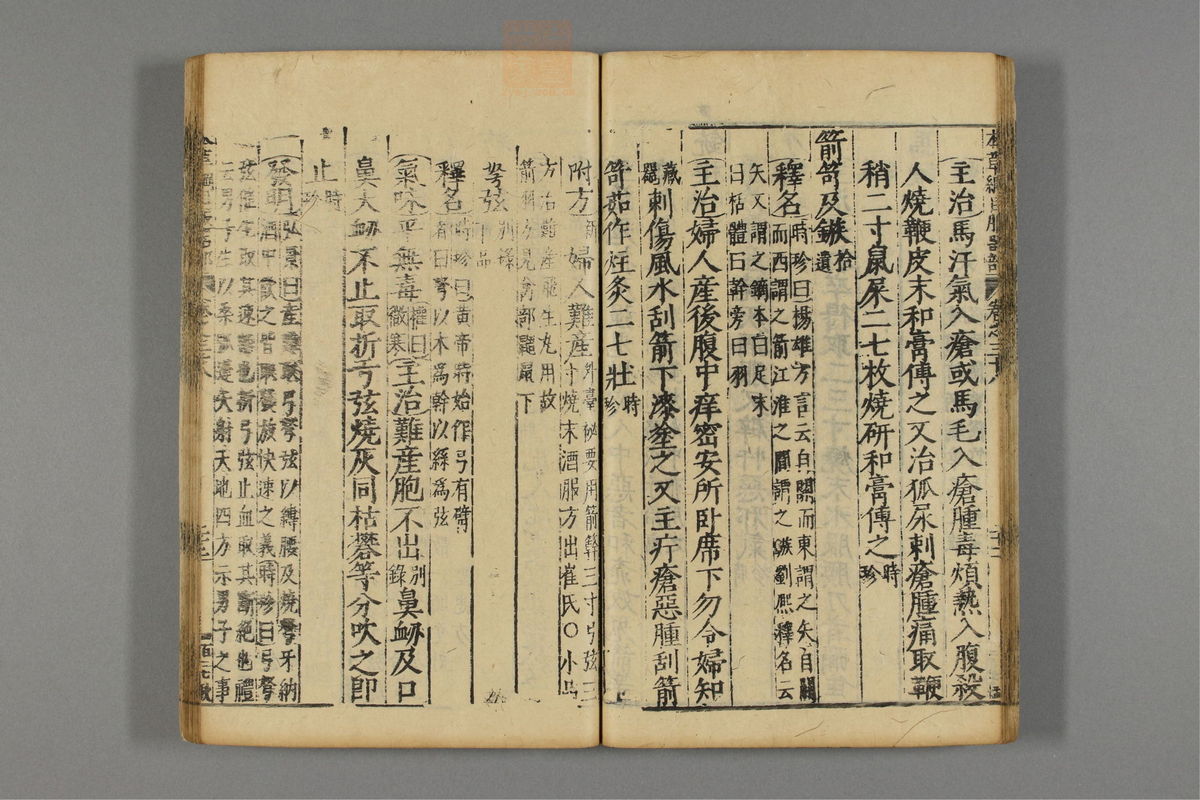 主治馬汗氣入瘡或馬毛入瘡腫毒煩熱入腹殺
人燒鞭皮末和膏傅之又治狐尿刺瘡腫痛取鞭
稍二寸鼠屎二七枚燒研和膏傅之時珍
箭笴及鏃拾遺
釋名時珍曰揚雄方言云自關而東謂之矢自關
而西謂之箭江淮之間謂之鏃劉熙釋名云
矢又謂之鏑本曰足末
曰栝體曰幹旁曰羽
主治婦人產後腹中痒密安所臥席下勿令婦知
藏器刺傷風水刮箭下漆塗之又主疔瘡惡腫刮箭
笴茹作炷灸二七壯時珍
附方新婦人難產外臺秘要用箭簳三寸弓弦三
寸燒末酒服方出崔氏○小品
方治難產飛生丸用故
箭羽方見禽部鼺鼠下
弩弦別錄下品
釋名時珍曰黃帝時始作弓有臂
者曰弩以木為幹以絲為弦
氣味平無毒權曰微寒主治難產胞不出別錄鼻衄及口
鼻大衄不止取折弓弦燒灰同枯礬等分吹之即
止時珍
發明弘景曰產難取弓弩弦以縛腰及燒弩牙納
酒中飲之皆取發放快速之義時珍曰弓弩
弦催生取其速離也折弓弦止血取其斷絕也禮
云男子生以桑弧蓬矢射天地四方示男子之事